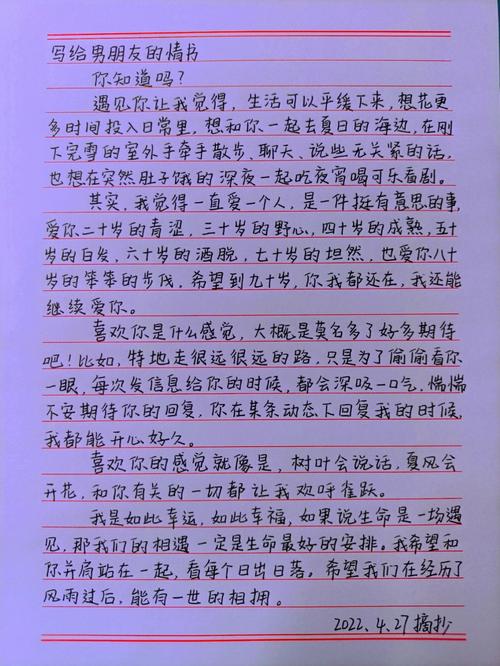 写给男朋友的情书
你知道吗？
遇见你让我觉得，生活可以平缓下来，想花更
多时间投入日常里，想和你一起去夏日的海边，在刚
下完雪的室外手牵手散步、聊天、说些无关紧的话，
也想在突然肚子饿的深夜一起吃夜宵喝可乐看剧。
其实，我觉得一直爱一个人，是一件挺有意思的事，
爱你二十岁的青涩，三十岁的野心，四十岁的成熟，五十
岁的白发，六十岁的洒脱，七十岁的坦然，也爱你八十
岁的笨笨的步伐，希望到九十岁，你我都还在，我还能
继续爱你。
喜欢你是什么感觉，大概是莫名多了好多期待
吧！比如，特地走很远很远的路，只是为了偷偷看你
一眼，每次发信息给你的时候，都会深吸一口气，惴惴
不安期待你的回复，你在某条动态下回复我的时候，
我都能开心好久。
喜欢你的感觉就像是，树叶会说话，夏风会
开花，和你有关的一切都让我欢呼雀跃。
我是如此幸运，如此幸福，如果说生命是一场遇
见，那我们的相遇一定是生命最好的安排。我希望和
你并肩站在一起，看每个日出日落。希望我们在经历了
风雨过后，能有一世的相拥。
2022、4.27摘抄